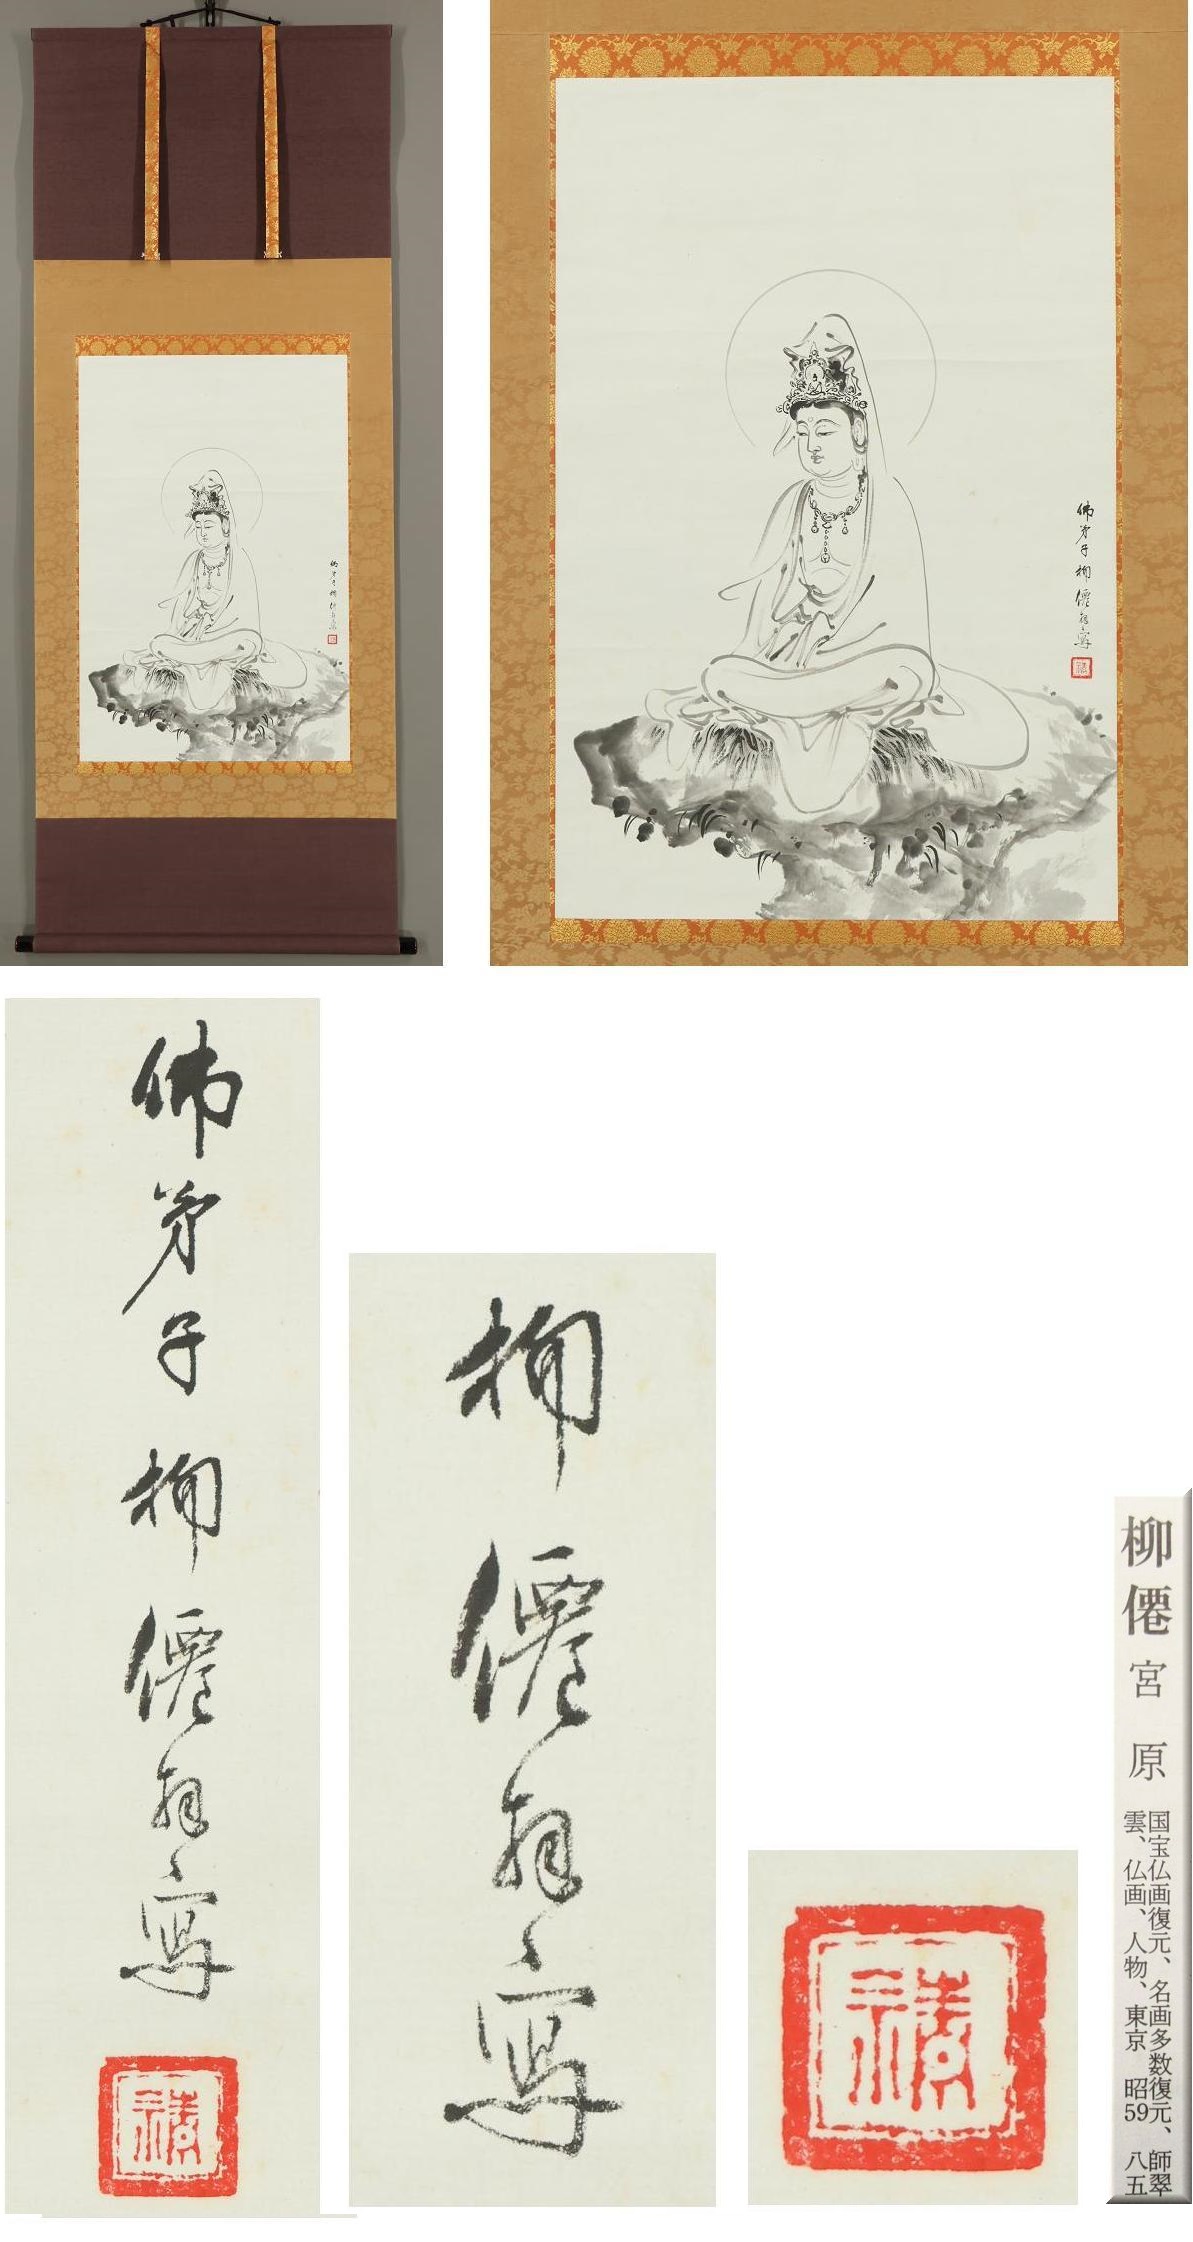 佛弟子柳僊拜寫
佛弟子柳僊拜寫
柳僊拜寫
柳僊 宮原
国宝仏画復元、名画多数復元、師翠
雲、仏画、人物、東京 昭59 八五